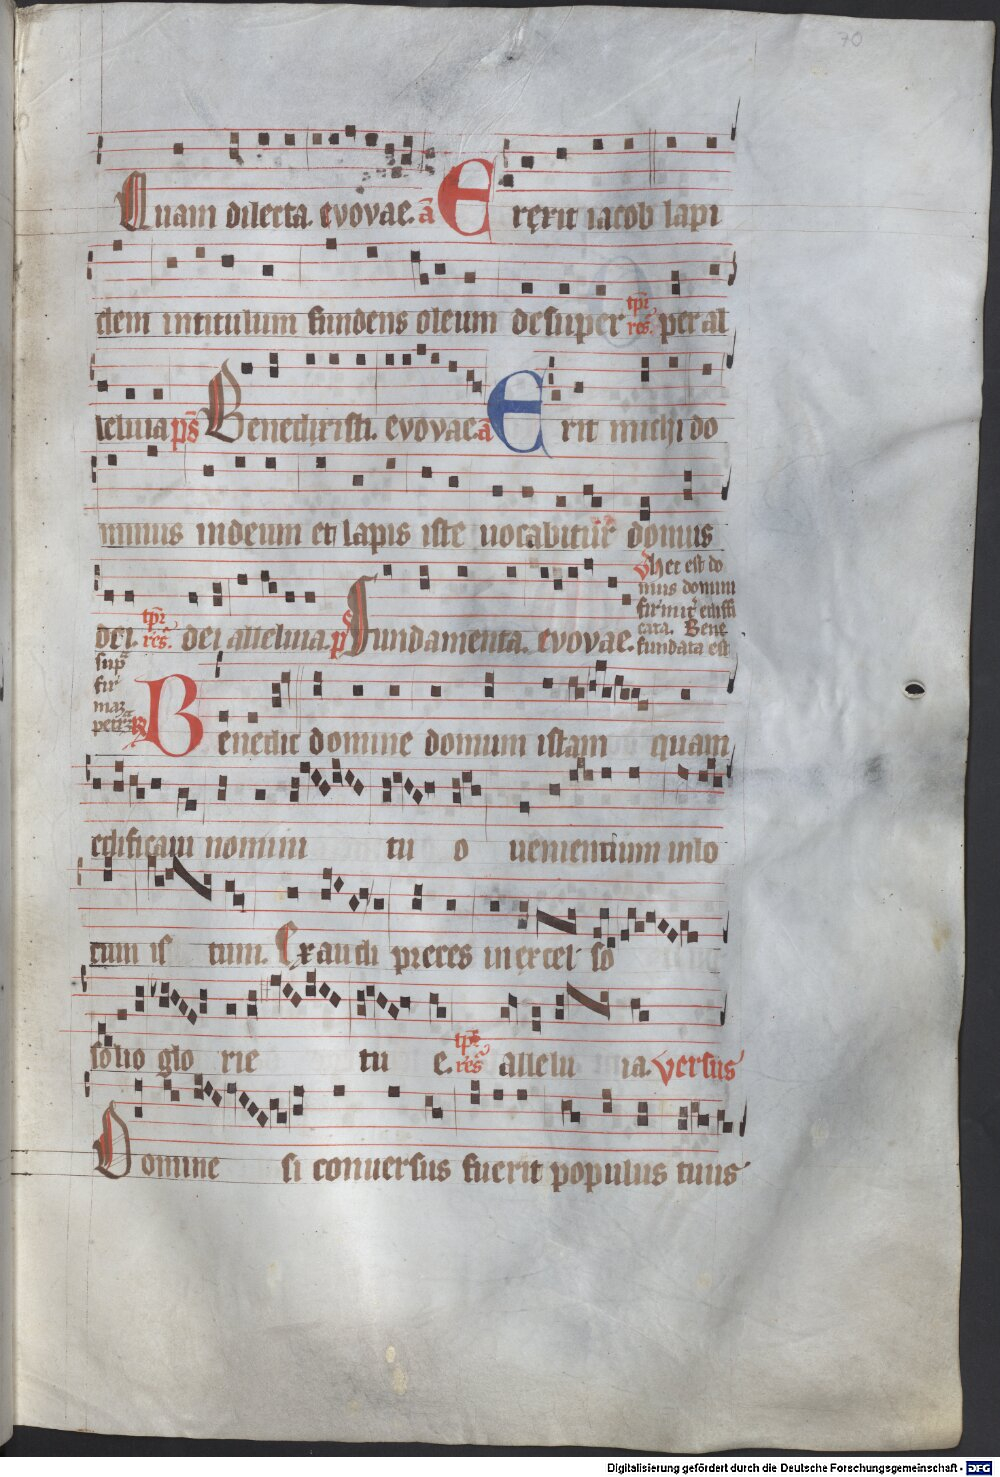 70
Quam dilecta. evovae. a̅ Erexit iacob lapi
dem intitulum fundens oleum desuper tp̅r res̅. per al
leluia ps̅ Benedixisti. evovae. a̅ Erit michi do
minus indeum et lapis iste uocabitur domus
dei. tp̅r res̅. dei alleluia. ps Fundamenta. evovae.
V hec est do
mus domini
firmit᷑ edifi
cata. Bene
fundata est
sup̅
fir
mam
petrā
R Benedic domine domum istam quam
edificaui nomini tu o uenientium inlo
cum is tum. Exaudi preces in excel so
solio glo rie tu e. tp̅r res̅ allelu ia. versus
Domine si conuersus fuerit populus tuus
Digitalisierung gefördert durch die Deutsche Forschungsgemeinschaft - DFG